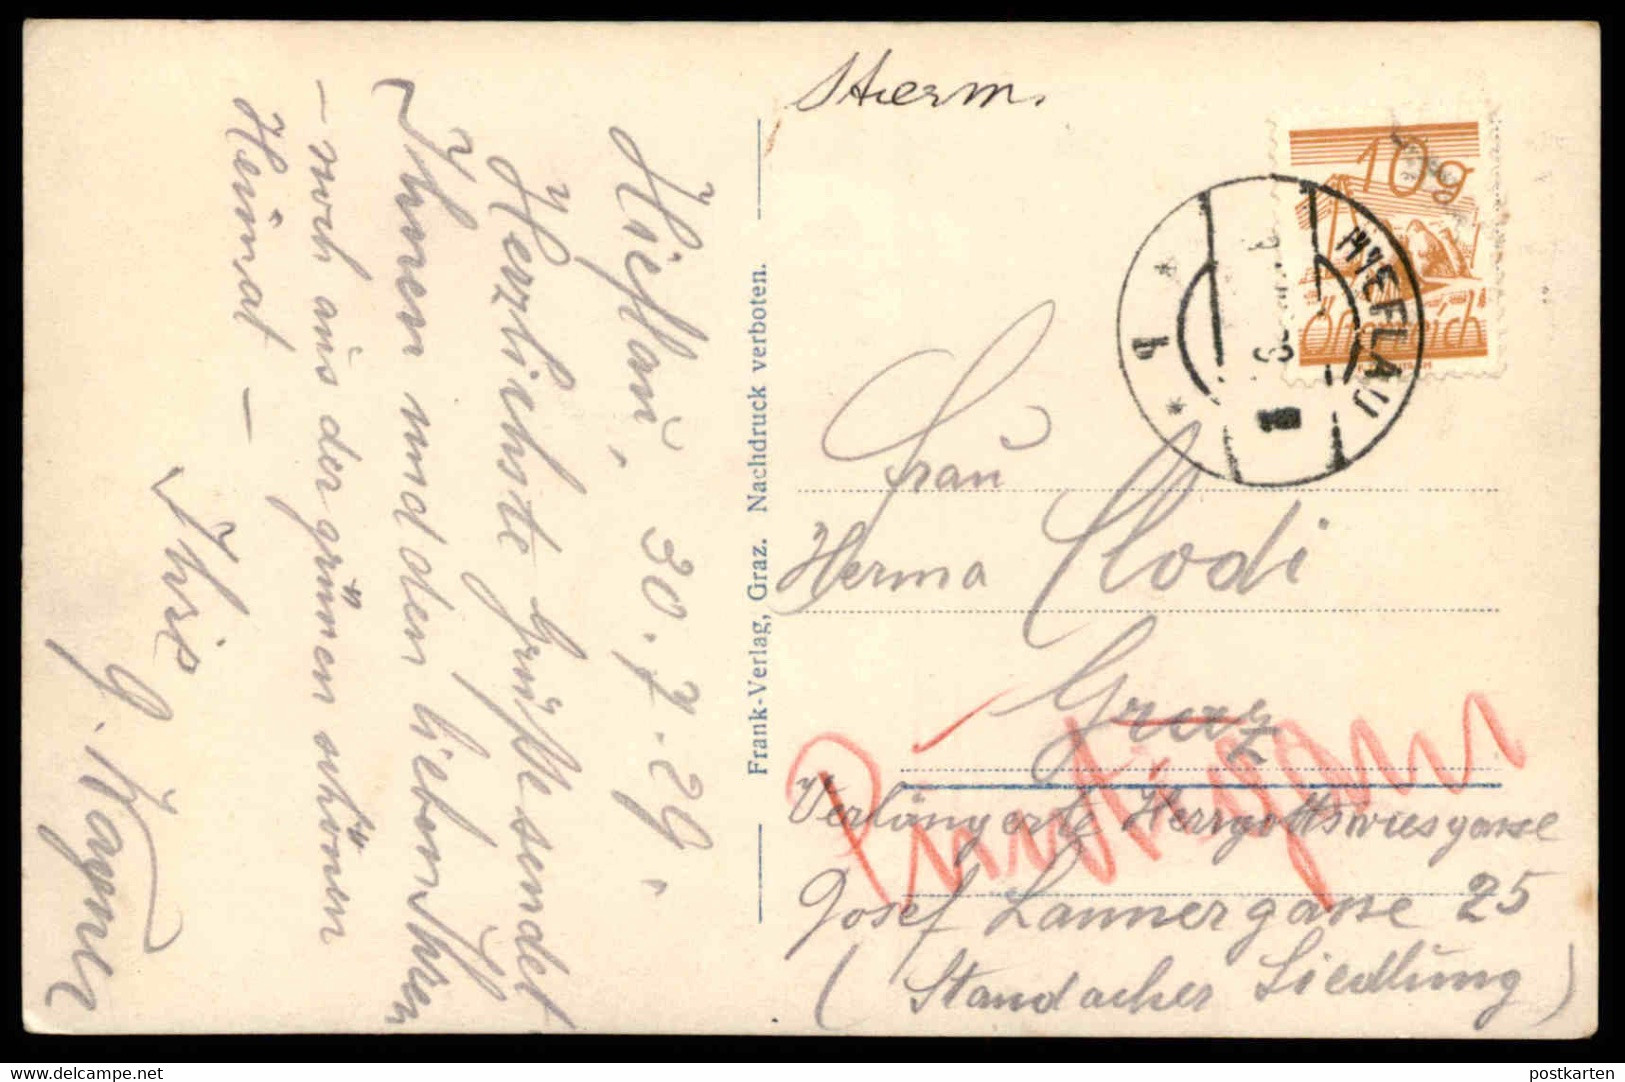 Hieflau, 30.7.29.
Herzlichste Grüße sendet
Ihnen und den lieben Ihren
– noch aus der grünen schönen
Heimat –
Ihre
G. Wagner
Frank-Verlag, Graz. Nachdruck verboten.
10g
Österreich
HIEFLAU
* b *
Frau
Herma Clodi
Graz
Verlängerte Herrgottswiesgasse
Josef Lannergasse 25
(Standacher Siedlung)
Puntigam
postkarten-welt.de
postkarten